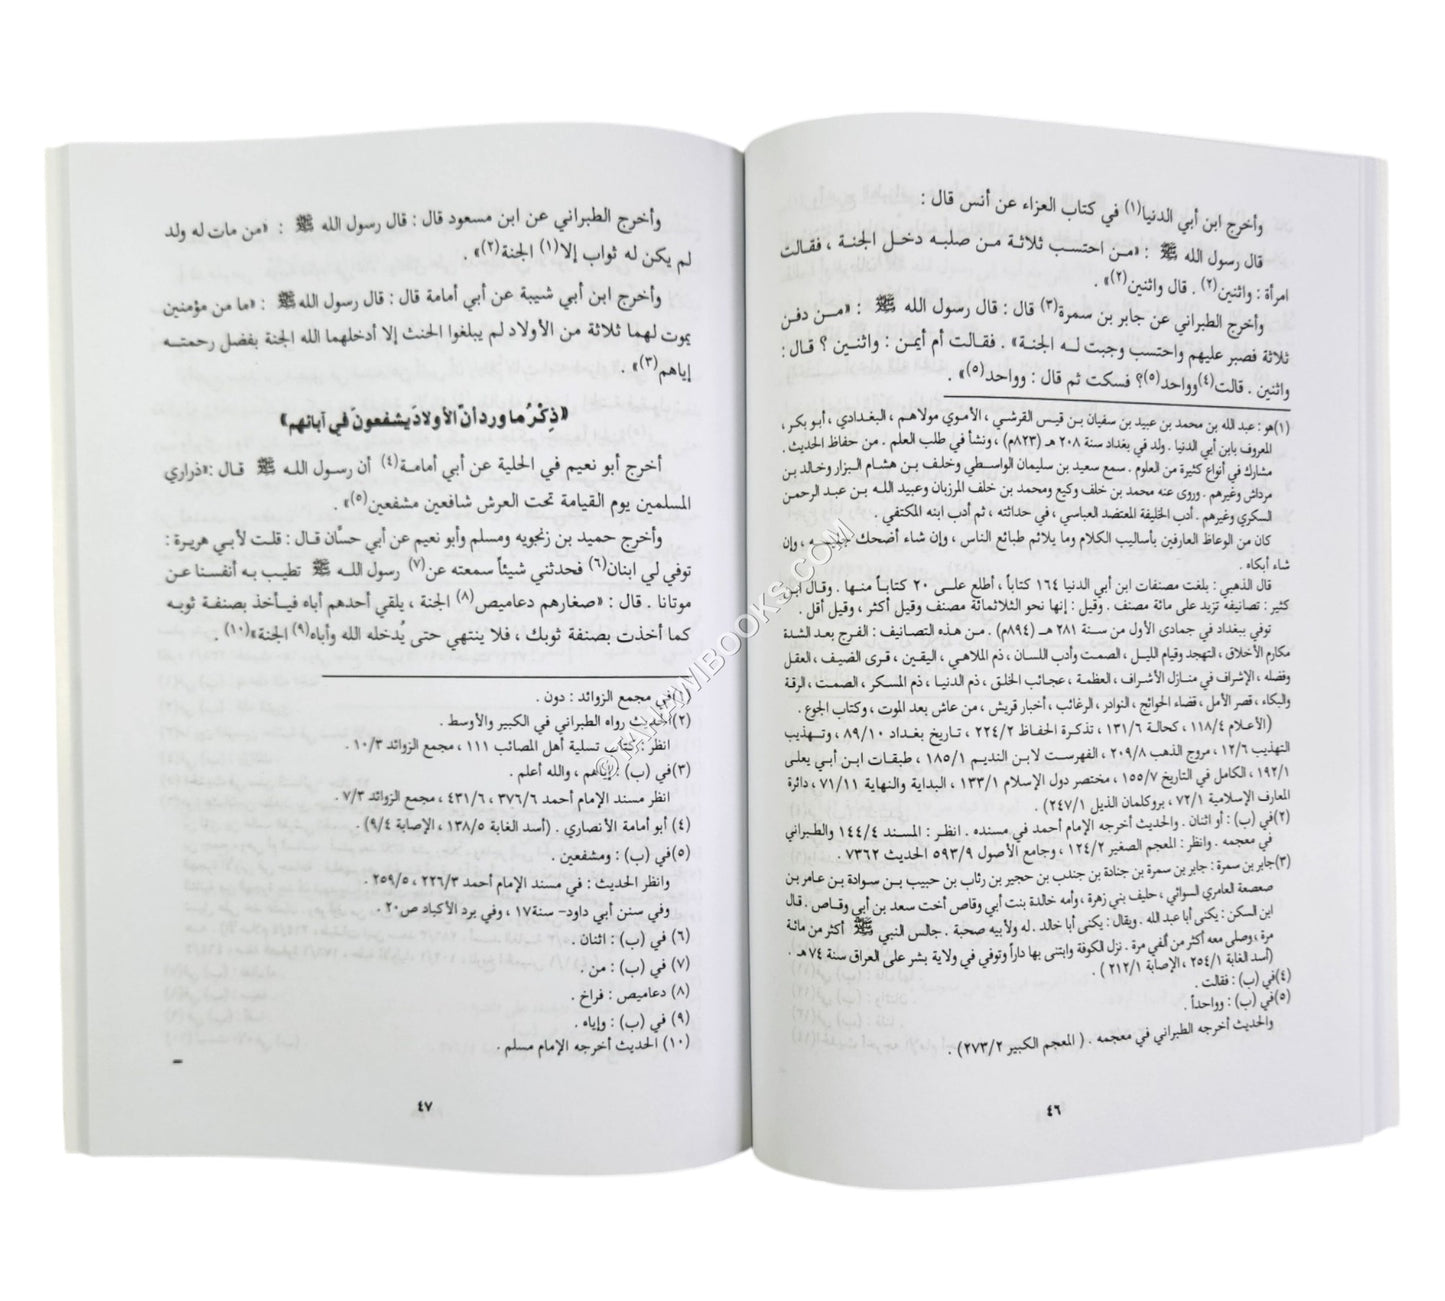 وأخرج ابن أبي الدنيا(١) في كتاب العزاء عن أنس قال :
قال رسول الله ﷺ : «من احتسب ثلاثة من صلبه دخل الجنة ، فقالت
امرأة : واثنين(٢) . قال واثنين(٢)» .
وأخرج الطبراني عن جابر بن سمرة(٣) قال : قال رسول الله ﷺ : «من دفن
ثلاثة فصبر عليهم واحتسب وجبت له الجنة» . فقالت أم أيمن : واثنين ؟ قال :
واثنين . قالت(٤)وواحد(٥)؟ فسكت ثم قال : وواحد(٥)» .
(١)هو : عبد الله بن محمد بن عبيد بن سفيان بن قيس القرشي ، الأموي مولاهم ، البغدادي ، أبو بكر ،
المعروف بابن أبي الدنيا . ولد في بغداد سنة ٢٠٨ هـ (٨٢٣م) ، ونشأ في طلب العلم . من حفاظ الحديث .
مشارك في أنواع كثيرة من العلوم . سمع سعيد بن سليمان الواسطي وخلف بن هشام البزار وخالد بن
مرداش وغيرهم . وروى عنه محمد بن خلف وكيع ومحمد بن خلف المرزبان وعبيد الله بن عبد الرحمن
السكري وغيرهم . أدب الخليفة المعتضد العباسي ، في حداثته ، ثم أدب ابنه المكتفي .
كان من الوعاظ العارفين بأساليب الكلام وما يلائم طبائع الناس ، وإن شاء أضحك جليسه ، وإن
شاء أبكاه .
قال الذهبي : بلغت مصنفات ابن أبي الدنيا ١٦٤ كتاباً ، أطلع على ٢٠ كتاباً منها . وقال ابن
كثير : تصانيفه تزيد على مائة مصنف . وقيل : إنها نحو الثلاثمائة مصنف وقيل أكثر ، وقيل أقل .
توفي ببغداد في جمادى الأول من سنة ٢٨١ هـ (٨٩٤م) . من هذه التصانيف : الفرج بعد الشدة
مكارم الأخلاق ، التهجد وقيام الليل ، الصمت وأدب اللسان ، ذم الملاهي ، اليقين ، قرى الضيف ، العقل
وفضله ، الإشراف في منازل الأشراف ، العظمة ، عجائب الخلق ، ذم الدنيا ، ذم المسكر ، الصمت ، الرقة
والبكاء ، قصر الأمل ، قضاء الحوائج ، النوادر ، الرغائب ، أخبار قريش ، من عاش بعد الموت ، وكتاب الجوع .
(الأعلام ١١٨/٤ ، كحالة ١٣١/٦ ، تذكرة الحفاظ ٢٢٤/٢ ، تاريخ بغداد ٨٩/١٠ ، وتهذيب
التهذيب ١٢/٦ ، مروج الذهب ٢٠٩/٨ ، الفهرست لابن النديم ١٨٥/١ ، طبقات ابن أبي يعلى
١٩٢/١ ، الكامل في التاريخ ١٥٥/٧ ، مختصر دول الإسلام ١٣٣/١ ، البداية والنهاية ٧١/١١ ، دائرة
المعارف الإسلامية ٧٢/١ ، بروكلمان الذيل ٢٤٧/١) .
(٢)في (ب) : أو اثنان . والحديث أخرجه الإمام أحمد في مسنده . انظر : المسند ١٤٤/٤ والطبراني
في معجمه . وانظر : المعجم الصغير ١٢٤/٢ ، وجامع الأصول ٥٩٣/٩ الحديث ٧٣٦٢ .
(٣)جابر بن سمرة : جابر بن سمرة بن جنادة بن جندب بن حجير بن رئاب بن حبيب بن سوادة بن عامر بن
صعصعة العامري السوائي ، حليف بني زهرة ، وأمه خالدة بنت أبي وقاص أخت سعد بن أبي وقاص . قال
ابن السكن : يكنى أبا عبد الله . ويقال : يكنى أبا خالد . له ولأبيه صحبة . جالس النبي ﷺ أكثر من مائة
مرة ، وصلى معه أكثر من ألفي مرة . نزل الكوفة وابتنى بها داراً وتوفي في ولاية بشر على العراق سنة ٧٤ هـ .
(أسد الغابة ٢٥٤/١ ، الإصابة ٢١٢/١) .
(٤)في (ب) : فقالت .
(٥)في (ب) : وواحداً .
والحديث أخرجه الطبراني في معجمه . ( المعجم الكبير ٢٧٣/٢) .
٤٦
وأخرج الطبراني عن ابن مسعود قال : قال رسول الله ﷺ : «من مات له ولد
لم يكن له ثواب إلا(١) الجنة(٢)» .
وأخرج ابن أبي شيبة عن أبي أمامة قال : قال رسول الله ﷺ : «ما من مؤمنين
يموت لهما ثلاثة من الأولاد لم يبلغوا الحنث إلا أدخلهما الله الجنة بفضل رحمته
إياهم(٣)» .
«ذِكْرُ ما ورد أن الأولاد يشفعونَ في آبائهم»
أخرج أبو نعيم في الحلية عن أبي أمامة(٤) أن رسول الله ﷺ قال :«ذراري
المسلمين يوم القيامة تحت العرش شافعين مشفعين(٥)» .
وأخرج حميد بن زنجويه ومسلم وأبو نعيم عن أبي حسَّان قال : قلت لأبي هريرة :
توفي لي ابنان(٦) فحدثني شيئاً سمعته عن(٧) رسول الله ﷺ تطيب به أنفسنا عن
موتانا . قال : «صغارهم دعاميص(٨) الجنة ، يلقي أحدهم أباه فيأخذ بصنفة ثوبه
كما أخذت بصنفة ثوبك ، فلا ينتهي حتى يُدخله الله وأباه(٩) الجنة»(١٠) .
(١)في مجمع الزوائد : دون .
(٢)الحديث رواه الطبراني في الكبير والأوسط .
انظر : كتاب تسلية أهل المصائب ١١١ ، مجمع الزوائد ١٠/٣ .
(٣)في (ب) : إياهم ، والله أعلم .
انظر مسند الإمام أحمد ٣٧٦/٦ ، ٤٣١/٦ ، مجمع الزوائد ٧/٣ .
(٤) أبو أمامة الأنصاري . (أسد الغابة ١٣٨/٥ ، الإصابة ٩/٤) .
(٥)في (ب) : ومشفعين .
وانظر الحديث : في مسند الإمام أحمد ٢٢٦/٣ ، ٢٥٩/٥ .
وفي سنن أبي داود– سنة١٧ ، وفي برد الأكباد ص٢٠ .
(٦) في (ب) : اثنان .
(٧) في (ب) : من .
(٨) دعاميص : فراخ .
(٩) في (ب) : وإياه .
(١٠) الحديث أخرجه الإمام مسلم .
٤٧
© TAHAWIBOOKS.COM